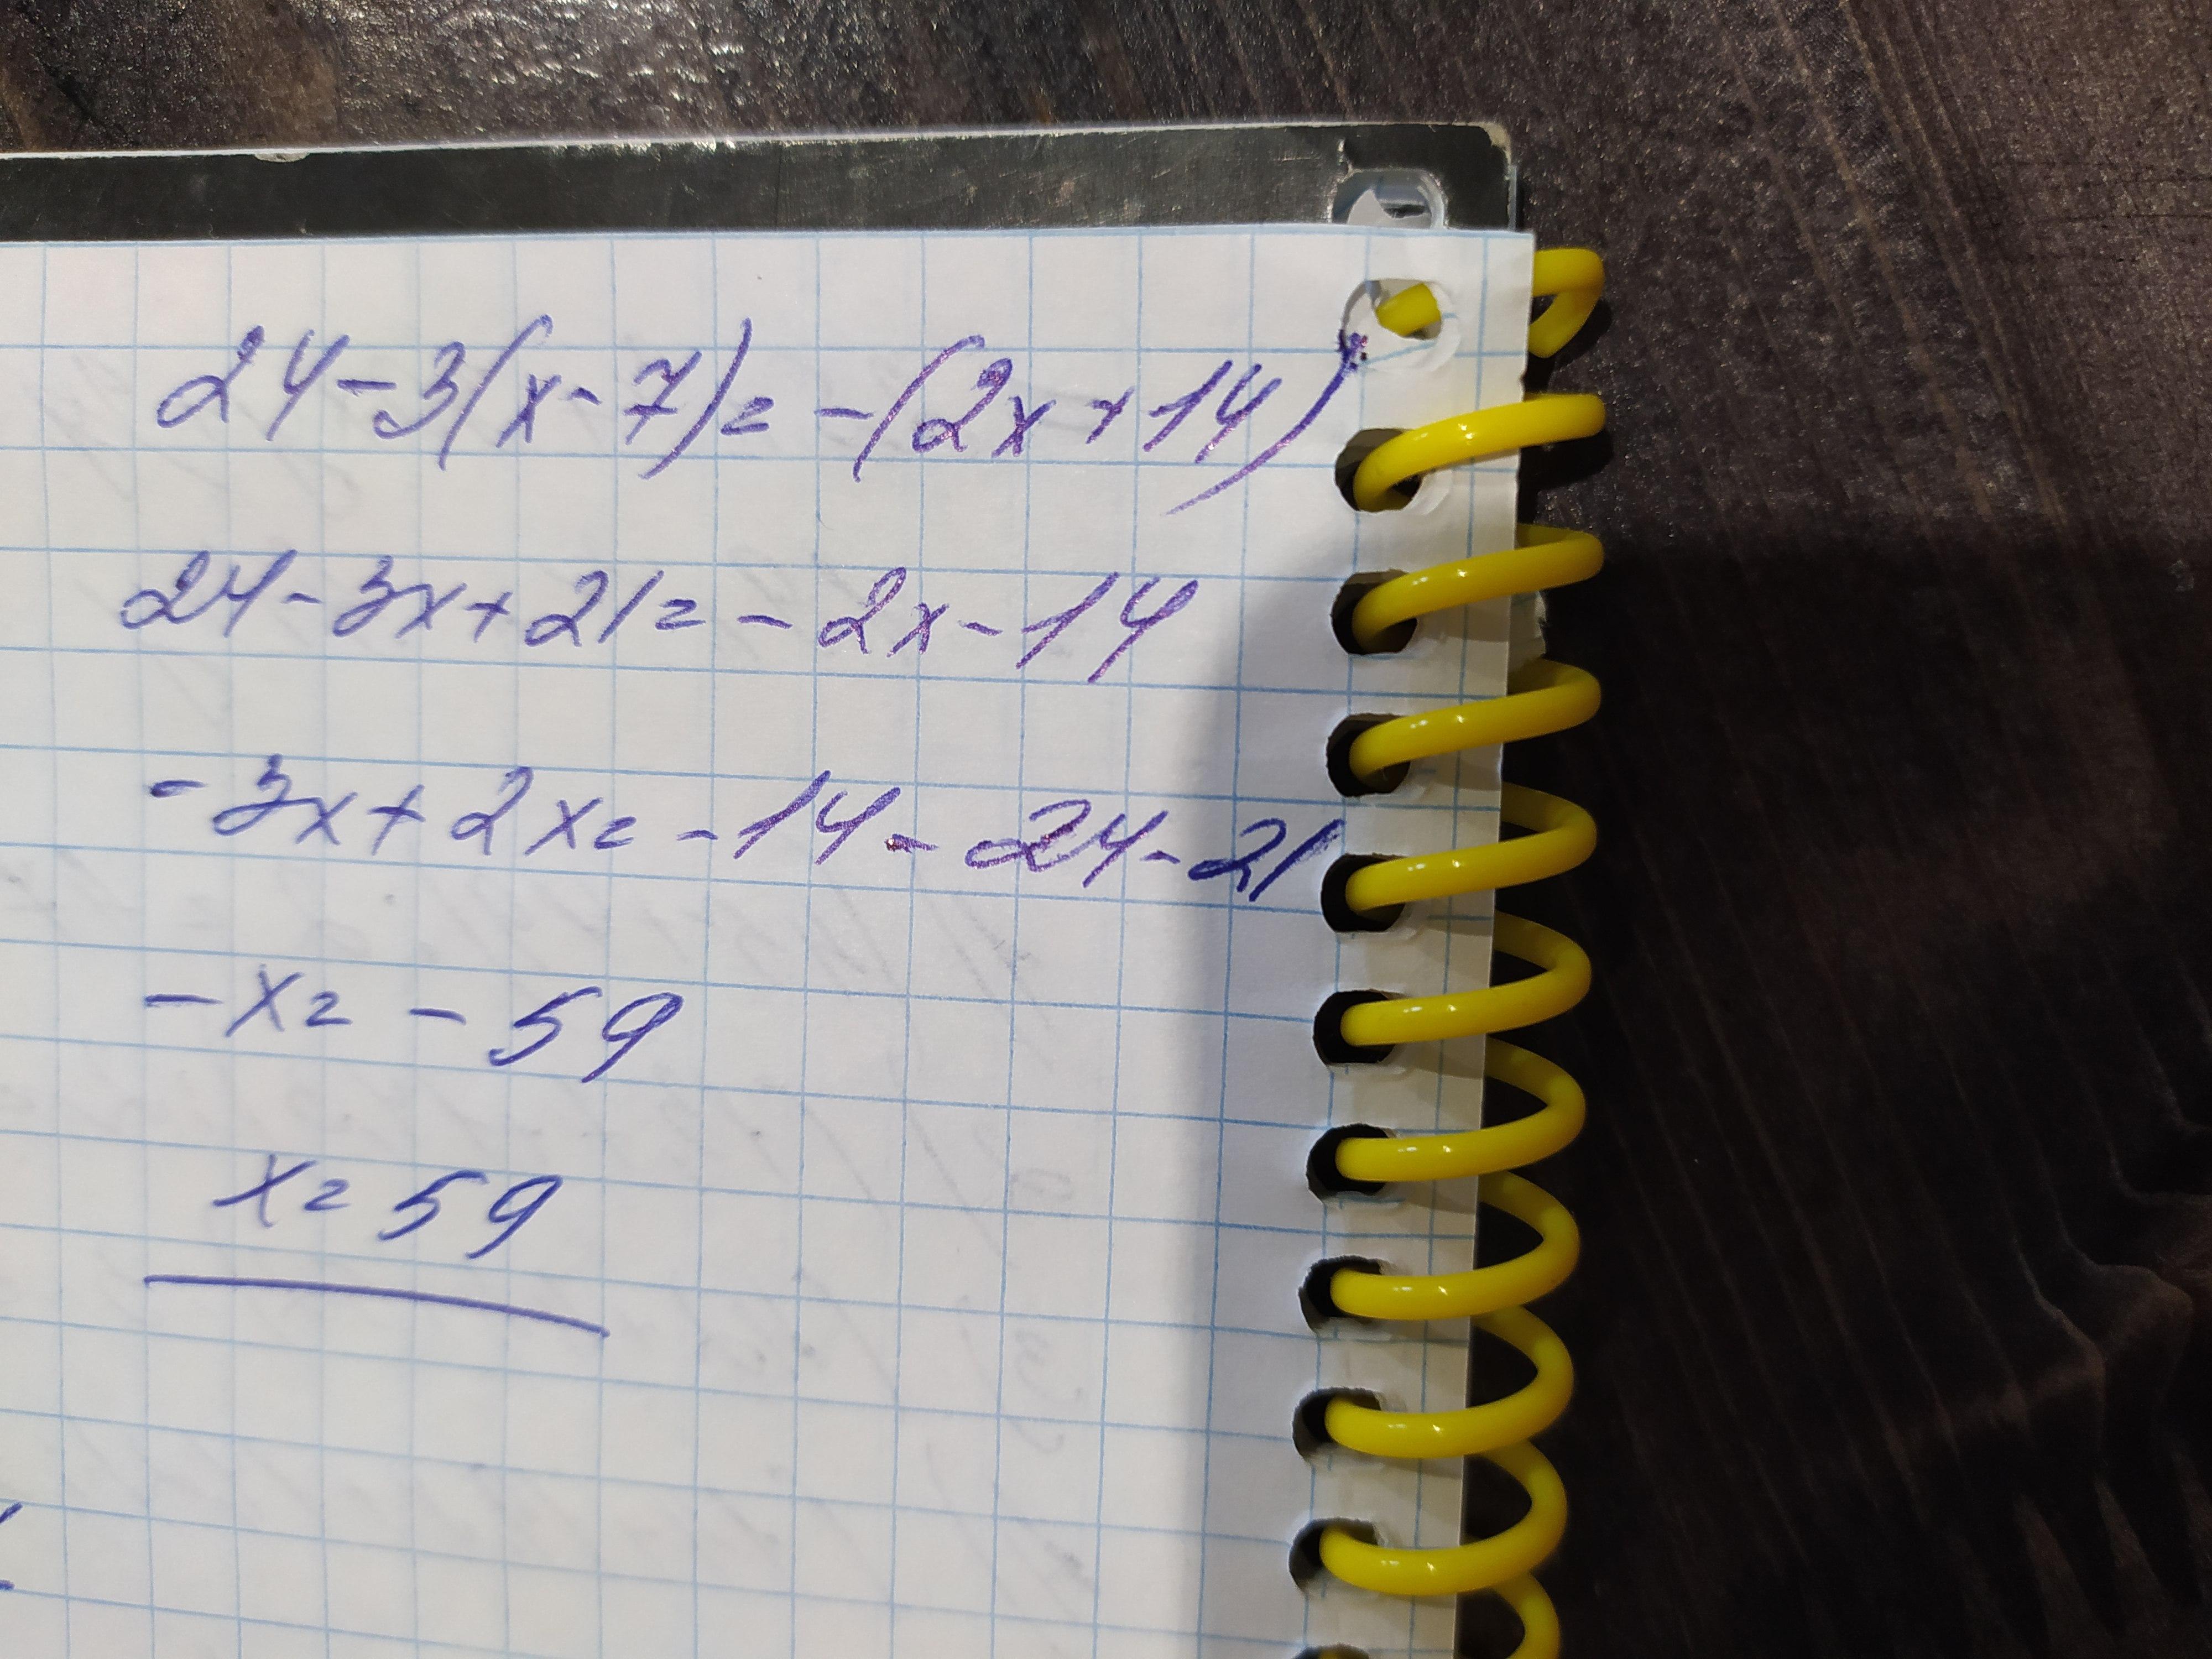 24-3(x-7)=-(2x+14)
24-3x+21=-2x-14
-3x+2x=-14-24-21
-x=-59
x=59